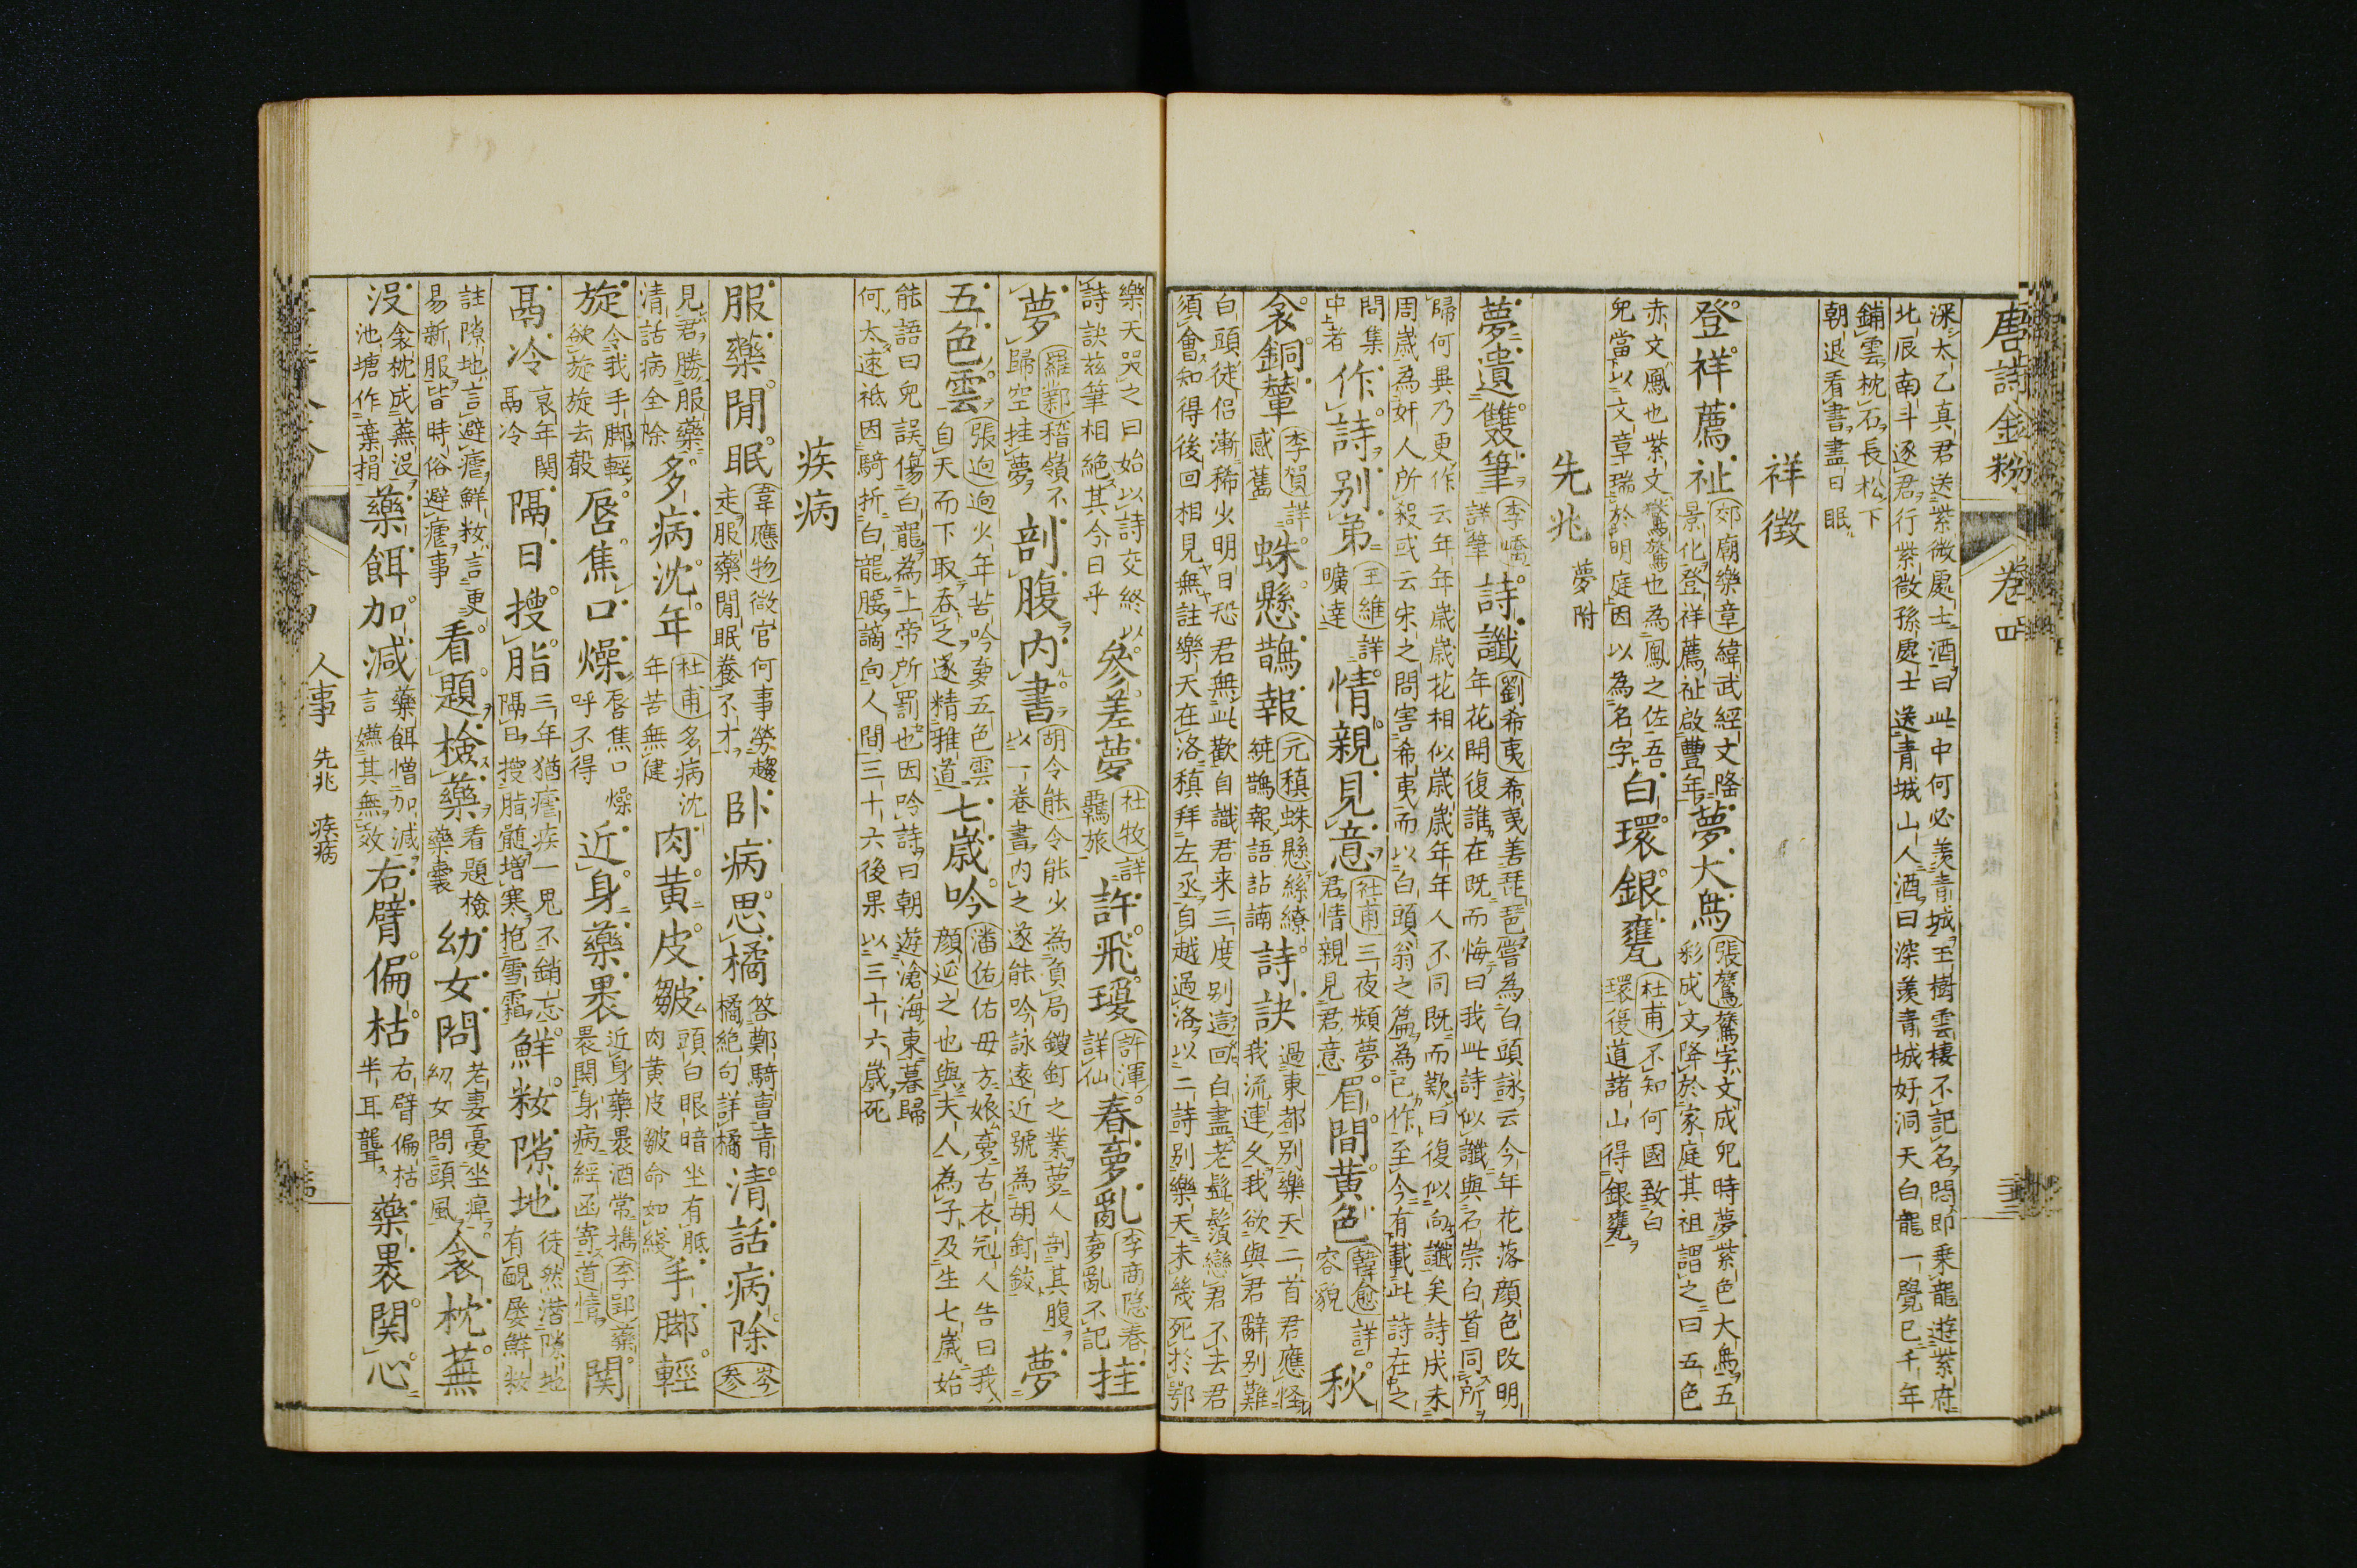 唐詩金粉 卷四
深太乙真君送紫微處士酒曰此中何必羡青城玉樹雲棲不記名悶即乗龍遊紫府
北辰南斗逐君行紫微孫處士送青城山人酒曰深羡青城好洞天白龍一覺已千年
鋪雲枕石長松下
朝退看書盡日眠
祥徴
登祥薦祉
郊廟樂章緯武經文隆
景化登祥薦祉啟豐年
夢大鳥
張鷟鷟字文成兒時夢紫色大鳥五
彩成文降於家庭其祖謂之曰五色
赤文鳳也紫文鸑鷟也為鳳之佐吾
兒當以文章瑞於明庭因以為名字
白環銀甕
杜甫不知何國致白
環復道諸山得銀甕
先兆 夢附
夢遺雙筆
李嶠
詳筆
詩讖
劉希夷希夷善琵琶嘗為白頭詠云今年花落顔色改明
年花開復誰在既而悔曰我此詩似讖與石崇白首同所
歸何異乃更作云年年歲歲花相似歲歲年年人不同既而歎曰復似向讖矣詩成未
周歲為奸人所殺或云宋之問害希夷而以白頭翁之篇為已作至今有載此詩在之
問集
中者
作詩別弟
王維詳
曠達
情親見意
杜甫三夜頻夢
君情親見君意
眉間黄色
韓愈詳
容貌
秋
衾銅輦
李賀詳
感舊
蛛懸鵲報
元稹蛛懸絲繚
繞鵲報語詀諵
詩訣
過東都別樂天二首君應怪
我流連久我欲與君辭別難
白頭徒侶漸稀少明日恐君無此歡自識君来三度別這回白盡老髭鬚戀君不去君
須會知得後回相見無註樂天在洛稹拜左丞自越過洛以二詩別樂天未幾死於鄂
樂天哭之曰始以詩交終以
詩訣茲筆相絶其今日乎
參差夢
杜牧詳
羇旅
許飛瓊
許渾
詳仙
春夢亂
李商隠春
夢亂不記
挂
夢
羅鄴稽嶺不
歸空挂夢
剖腹内書
胡令能令能少為負局鎪釘之業夢人剖其腹
以一巻書内之遂能吟詠遠近號為胡釘鉸
夢
五色雲
張迥迥少年苦吟夢五色雲
自天而下取吞之遂精雅道
七歲吟
潘佑佑母方娠夢古衣冠人告曰我
顔延之也與夫人為子及生七歲始
能語曰兒誤傷白龍為上帝所罰也因吟詩曰朝遊滄海東暮歸
何太速祗因騎折白龍腰謫向人間三十六後果以三十六歲死
疾病
服藥閒眠
韋應物微官何事勞趨
走服藥閒眠養不才
卧病思橘
答鄭騎曹青
橘絶句詳橘
清話病除
岑
参
見君勝服藥
清話病全除
多病沈年
杜甫多病沈
年苦無健
肉黄皮皺
頭白眼暗坐有胝
肉黄皮皺命如綫
手脚輕
旋
令我手脚輕
欲旋旋去觳
唇焦口燥
唇焦口燥
呼不得
近身藥裹
近身藥裹酒常攜李郢藥
裹関身病經函寄道情
関
鬲冷
哀年関
鬲冷
隔日搜脂
三年猶瘧疾一鬼不銷忘
隔日搜脂髄增寒抱雪霜
鮮妝隙地
徒然潜隙地
有靦屡鮮妝
註隙地言避瘧鮮妝言更
易新服皆時俗避瘧事
看題檢藥
看題檢
藥囊
幼女問
老妻憂坐痺
幼女問頭風
衾枕蕪
没
衾枕成蕪没
池塘作棄捐
藥餌加減
藥餌憎加減
言嫌其無效
右臂偏枯
右臂偏枯
半耳聾
藥裹関心
人事 先兆 疾病